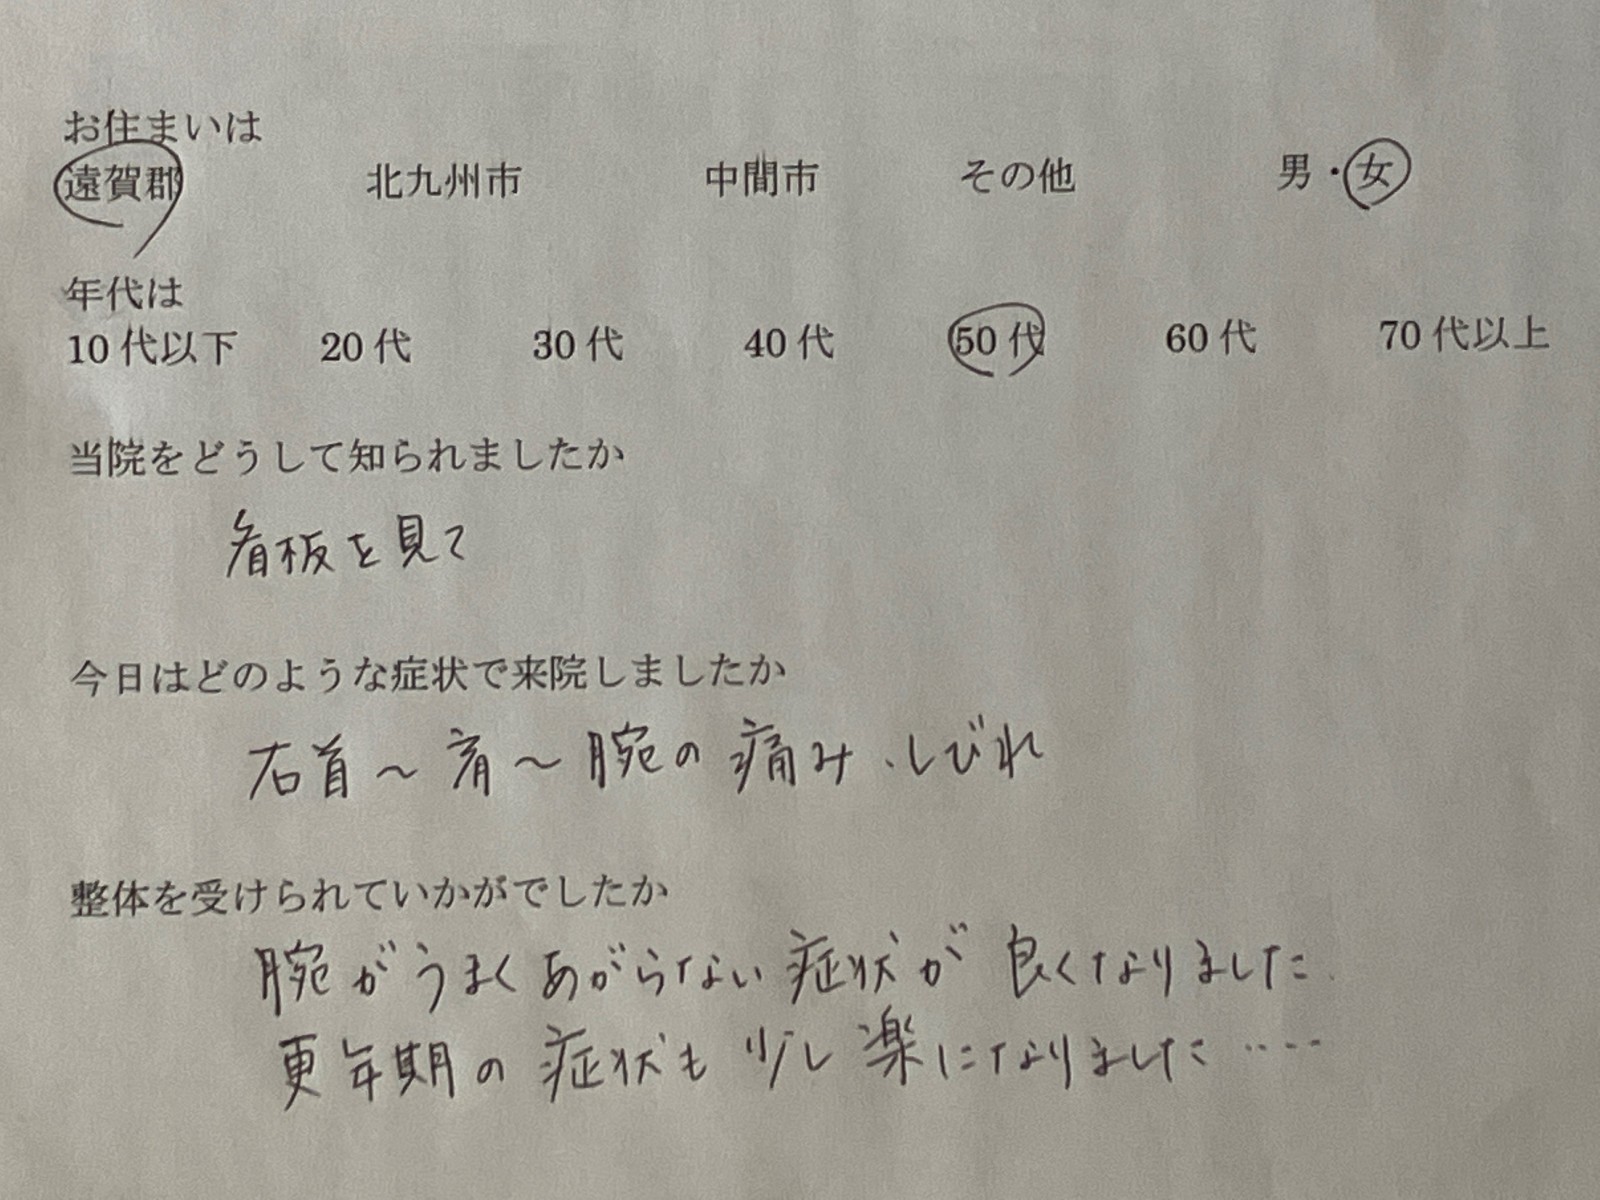 お住まいは
遠賀郡 北九州市 中間市 その他 男・女
年代は
10代以下 20代 30代 40代 50代 60代 70代以上
当院をどうして知られましたか
看板を見て
今日はどのような症状で来院しましたか
右首〜肩〜腕の痛み、しびれ
整体を受けられていかがでしたか
腕がうまくあがらない症状が良くなりました
更年期の症状も少し楽になりました……